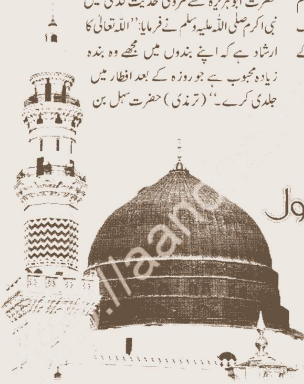 حضرت ابوہریرہؓ سے مروی حدیث قدسی میں
نبی اکرم صلی اللہ علیہ وسلم نے فرمایا: ’’اللہ تعالیٰ کا
ارشاد ہے کہ اپنے بندوں میں مجھے وہ بندہ
زیادہ محبوب ہے جو روزہ کے بعد افطار میں
جلدی کرے۔‘‘ (ترمذی) حضرت سہل بن
//aand